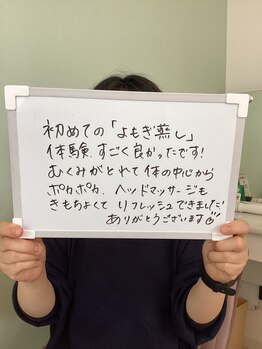 初めての「よもぎ蒸し」
体験、すごく良かったです!
むくみがとれて体の中心から
ポカポカ、ヘッドマッサージも
きもちよくてリフレッシュできました!
ありがとうございます